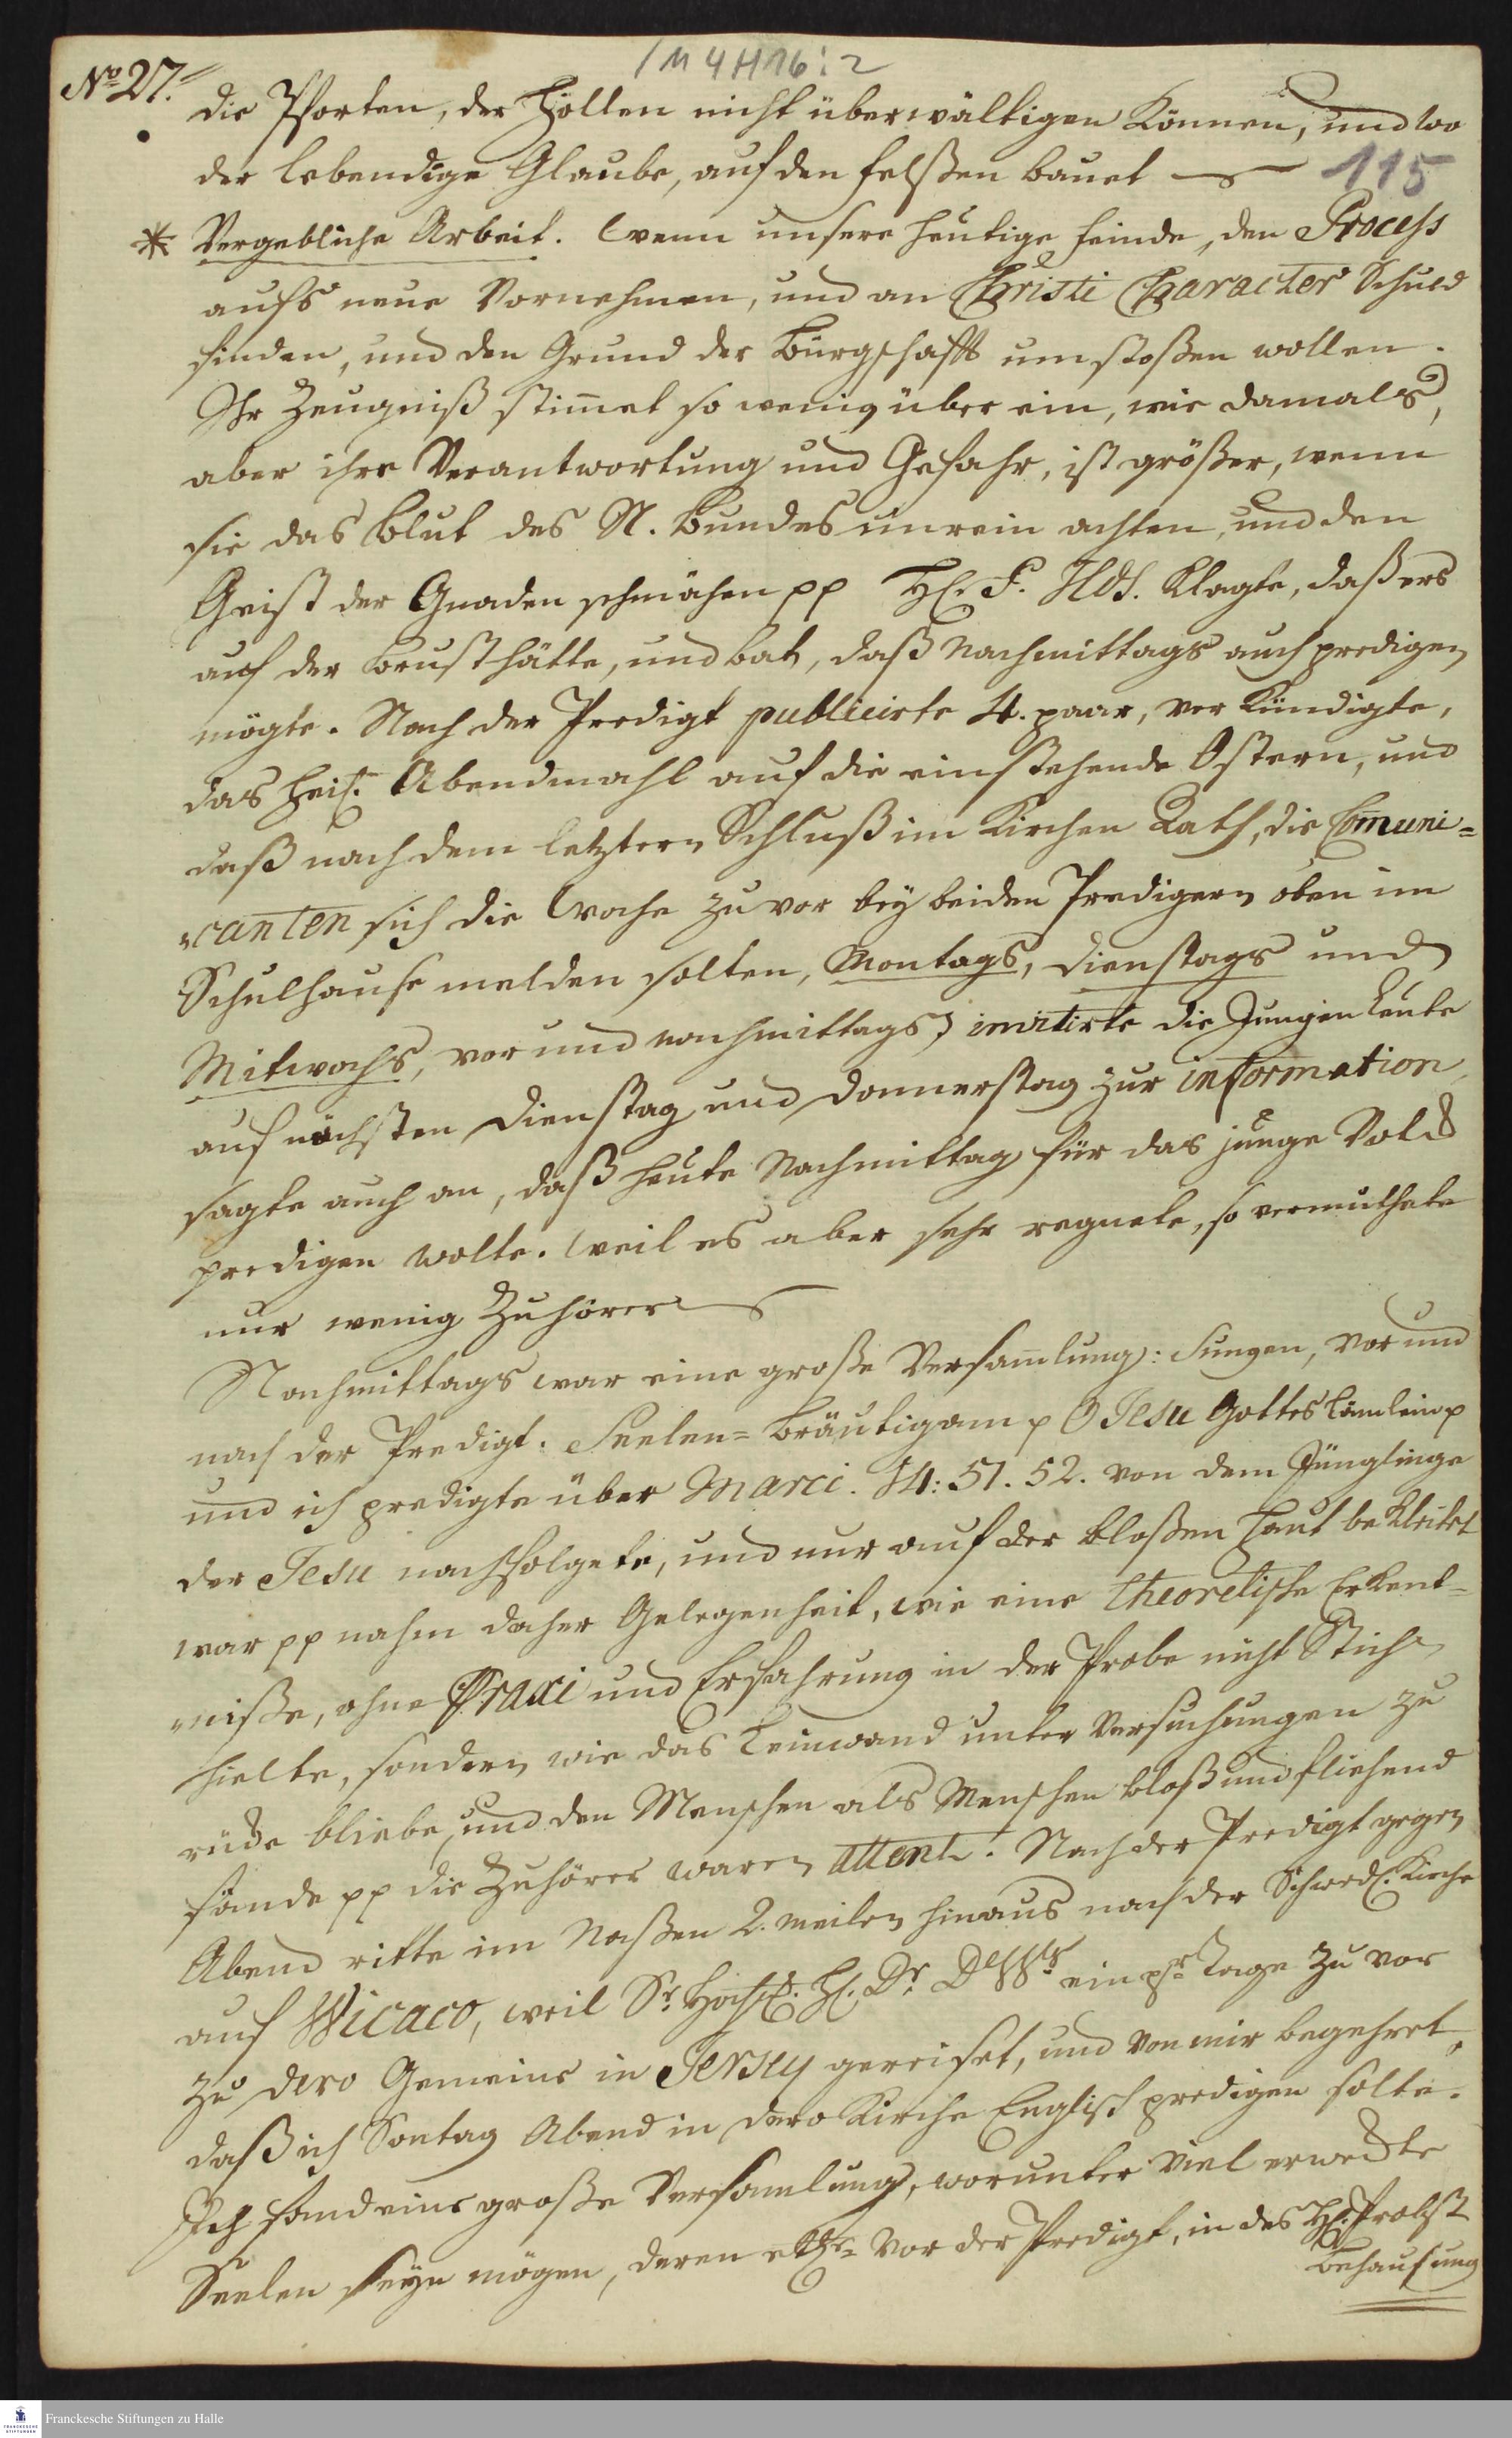 /M 4 H 16: 2
No 27.
die Pforten, der Höllen nicht überwältigen können, und wo
der lebendige Glaube, auf den Felßen bauet —
115
* Vergebliche Arbeit. Wenn unsere heutige Feinde, den Process
aufs neue vornehmen, und an Christi Character Schuld
finden, und den Grund der Bürgschafft umstoßen wollen.
Ihr Zeugniß stim̄et so wenig überein, wie damals,
aber ihre Verantwortung und Gefahr, ist größer, wenn
sie das Blut des N. Bundes unrein achten, und den
Geist der Gnaden schmähen pp H. P. Hdß. klagte, daß ers
auf der Brust hätte, und bat, daß Nachmittags auch predigen
mögte. Nach der Predigt publicirte 4. paar, verkündigte,
das heil. Abendmahl auf die einstehende Ostern, und
daß nach dem letztern Schluß im Kirchen Rath, die Com̄uni-
canten sich die Woche zuvor bey beiden Predigern oben im
Schulhause melden solten, Montags, Dienstags und
Mitwochs, vor und nachmittags, invitirte die Jungen Leute
auf nächsten Dienstag und Donnerstag zur information,
sagte auch an, daß heute Nachmittag für das junge Volck
predigen wolte. Weil es aber sehr regnete, so vermuthete
nur wenig Zuhörer —
Nachmittags war eine große Versam̄lung: Sungen, vor und
nach der Predigt. Seelen-Bräutigam p O Jesu Gottes Läm̄lein p
und ich predigte über Marci. 14: 51. 52. von dem Jünglinge
der Jesu nachfolgete, und nur auf der bloßen Haut bekleidet
war pp nahm daher Gelegenheit, wie eine theoretische Erkent-
niße, ohne Praxi und Erfahrung in der Probe nicht Stich
hielte, sondern wie das Leinwand unter Versuchungen zu
rücke bliebe, und den Menschen als Menschen bloß und fliehend
fände pp die Zuhörer waren attent. Nach der Predigt gegen
Abend ritte im Naßen 2. Meilen hinaus nach der Schwed. Kirche
auf Wicaco, weil Sr. Hochw. H. Dr. DWr. ein pr. Tage zuvor
zu dero Gemeine in Jersey gereiset, und von mir begehret,
daß ich Sontag Abend in dero Kirche Englisch predigen solte.
Ich fand eine große Versam̄lung, worunter viel erweckte
Seelen seyn mögen, deren etl. vor der Predigt, in des H. Probst
Behausung
Franckesche Stiftungen zu Halle